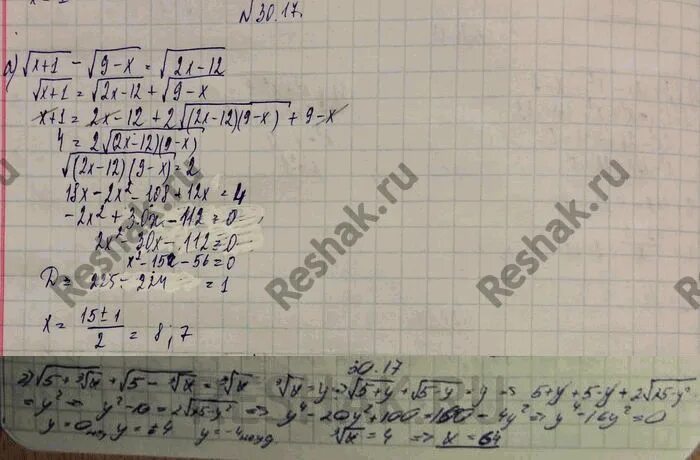 №30.17.
а) √x+1 - √9-x = √2x-12
√x+1 = √2x-12 + √9-x
x+1 = 2x-12 + 2√(2x-12)(9-x) + 9-x
4 = 2√(2x-12)(9-x)
√(2x-12)(9-x) = 2
18x - 2x² - 108 + 12x = 4
-2x² + 30x - 112 = 0
2x² - 30x - 112 = 0
x² - 15x - 56 = 0
D = 225 - 224 = 1
x = 15±1/2 = 8; 7
Reshak.ru
Reshak.ru
Reshak.ru
30.17
√5+∛x + √5-∛x = ∛x ∛x = y ⇒ √5+y + √5-y = y ⇒ 5+y+5-y+2√25-y²
= y² ⇒ y²-10 = 2√25-y² ⇒ y⁴-20y²+100 = 100-4y² ⇒ y⁴-16y² = 0
y = 0 y = ±4 y = -4 ∛x = 4 ⇒ x = 64